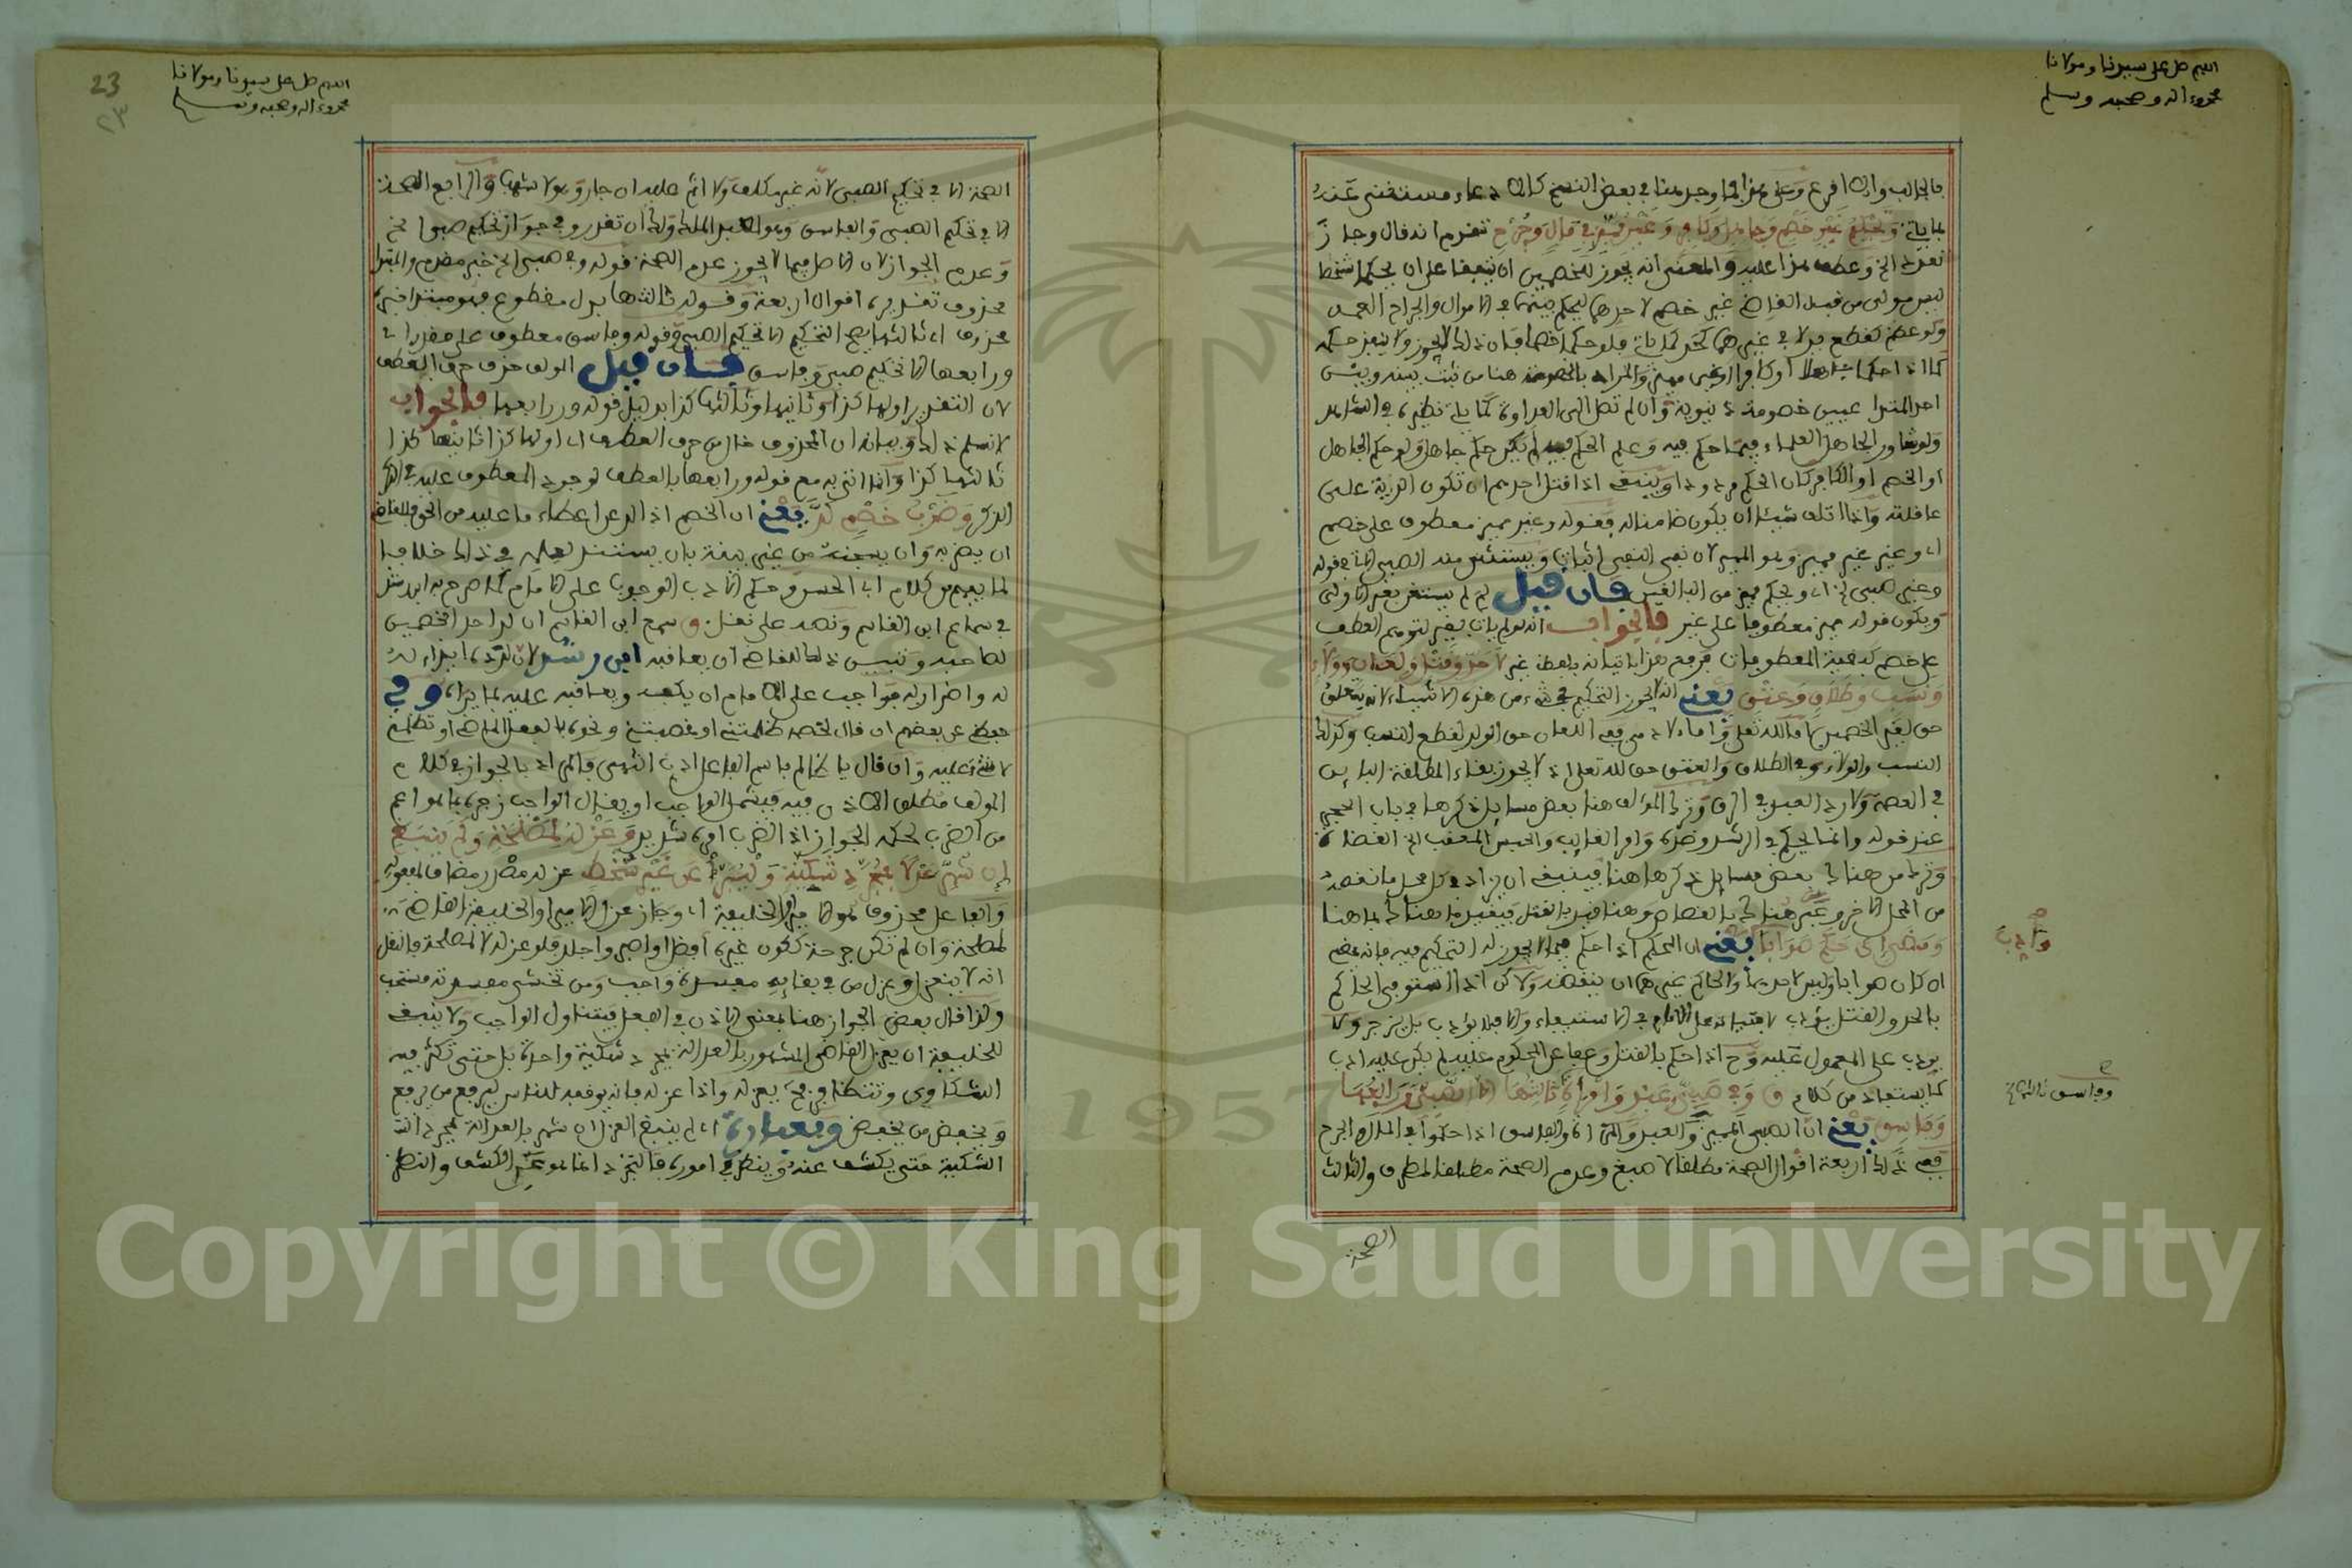 اللهم صل على سيدنا ومولانا
محمد وءاله وصحبه وسلم
فالجالب والا اقرع وعلى هذا فما وجد هنا في بعض النسخ كالادعاء مستغنى عنه
بما ياتي وتحكيم غير خصم وجاهل وكافر وغير مميز في مال وجرح تقدم انه قال وجاز
تعدد الخ وعطف هذا عليه والمعنى انه يجوز للخصمين ان يتفقا على ان يحكما شخصا
ليس مولى من قبل القاضي غير خصم لاحدهما ليحكم بينهما في الاموال والجراح العمد
ولو عظم كقطع يد لا في غيرهما كحد كما ياتي فلو حكما خصما فان ذلك لا يجوز ولا ينفذ حكمه
كما اذا حكما جاهلا او كافرا او غير مميز والمراد بالخصومة هنا من ثبت بينه وبين
احد المتداعيين خصومة دنيوية وان لم تصل الى العداوة كما ياتي نظيره في الشاهد
ولو شاور الجاهل العلماء فيما حكم فيه وعلم الحكم فيه لم يكن حكم جاهل ولو حكم الجاهل
او الخصم او الكافر كان الحكم مردودا وينبغي اذا قتل احدهم ان تكون الدية على
عاقلته واذا اتلف شيئا ان يكون ضامنا له فقوله وغير مميز معطوف على خصم
اي وغير غير مميز وهو المميز لان نفي النفي اثبات ويستثنى منه الصبي لما في قوله
وغير صبي الخ اي ويحكم مميز من البالغين فان قيل لم لم يستغن بغير الاولى
ويكون قوله مميز معطوفا على غير فالجواب انه لو لم يات بغير لتوهم العطف
على خصم كبقية المعطوفات فرفع هذا باتيانه بلفظ غير لا حد وقتل ولعان وولاء
ونسب وطلاق وعتق يعني انه لا يجوز التحكيم في شيء من هذه الاشياء لانه يتعلق
النسب والولاء وفي الطلاق والعتق حق لله تعلى اذ لا يجوز بقاء المطلقة الباين
في العصمة ولا رد العبد في الرق وترك المولف هنا بعض مسايل ذكرها في باب الحجر
عند قوله وانما يحكم في الرشد وضده وامر الغائب والحبس المعقب الخ القضاة
وترك من هناك بعض مسايل ذكرها هنا فينبغي ان يزاد في كل محل ما نقصه
من المحل الاخر وعبر هناك بالقصاص وهنا عبر بالقتل فيقيد ما هناك بما هنا
ومضى ان حكم صوابا يعني ان المحكم اذا حكم فيما لا يجوز له التحكيم فيه فانه يمضي
ان كان صوابا وليس لاحدهما ولا لحاكم غيرهما ان ينقضه ولاكن اذا استوفى الحاكم
بالحد والقتل يؤدب لافتياته على الامام في الاستيفاء والا فلا يؤدب بل يزجر ولا
يودب على المعمول عليه وح اذا حكم بالقتل وعفا عن المحكوم عليه لم يكن عليه ادب
كما يستفاد من كلام ق وفي صبي وعبد وامراة ثالثها الا الصبي ورابعها
وفاسق يعني ان الصبي المميز والعبد والمراة والفاسق اذا حكموا في المال والجرح
ففي ذلك اربعة اقوال الصحة مطلقا لاصبغ وعدم الصحة مطلقا لمطرف والثالث
وادب
وفاسق
الصحة
23
٢٣
اللهم صل على سيدنا ومولانا
محمد وءاله وصحبه وسلم
الصحة الا في تحكيم الصبي لانه غير مكلف ولا اثم عليه ان جار وهو لاشهب والرابع الصحة
الا في تحكيم الصبي والفاسق وهو لعبد الملك ولك ان تقدر وفي جواز تحكيم صبي الخ
وعدم الجواز لان الاصل فيما لا يجوز عدم الصحة قوله وفي صبي الخ خبر مقدم والمبتدا
محذوف تقديره اقوال اربعة وقوله ثالثها بدل مقطوع فهو مبتدا خبره
محذوف اي ثالثها يصح التحكيم الا تحكيم الصبي وقوله وفاسق معطوف على مقدر اي
ورابعها الا تحكيم صبي وفاسق فان قيل المولف حذف حرف العطف
لان التقدير اولها كذا وثانيها وثالثها كذا بدليل قوله ورابعها فالجواب
لا نسلم ذلك وبيانه ان المحذوف خال من حرف العطف اي اولها كذا ثانيها كذا
ثالثها كذا وانما اتى به مع قوله ورابعها بالعطف لوجود المعطوف عليه في
الذكر وضرب خصم لد يعني ان الخصم اذا لد عن اعطاء ما عليه من الحق فللقاضي
ان يضربه وان يسجنه من غير بينة بان يستند لعلمه في ذلك خلافا
لما يفهم من كلام ابي الحسن وحكم الادب الوجوب على الامام كما صرح به ابن رشد
في سماع ابن القاسم ونصه على نقل ق سمع ابن القاسم ان لد احد الخصمين
لصاحبه وتبين ذلك للقاضي ان يعاقبه ابن رشد لان لدده ايذاء له
له واضرار به فواجب على الامام ان يكفه ويعاقبه عليه بما يراه وفي
حفظي عن بعضهم ان قال لخصمه ظلمتني او غصبتني ونحوه بالفعل الماضي او تظلمني
لا شيء عليه وان قال يا ظالم باسم الفاعل ادب انتهى والمراد بالجواز في كلام
المولف مطلق الاذن فيه فيشمل الواجب او يقال الواجب زجره بما هو اعم
من الضرب لحكمه الجواز اذ الضرب امره شديد وعزله لمصلحة ولم ينبغ
ان شهر عدلا بمجرد شكية وليبرا عن غير سخط عزله مصدر مضاف لمفعوله
والفاعل محذوف هو الامير او الخليفة اي وجاز عزل الامير او الخليفة القاضي
لمصلحة وان لم تكن جرحة ككون غيره افضل او اصبر واجلد فلو عزله لا لمصلحة فالنقل
انه لا ينعزل وعزل من في بقايه مفسدة واجب ومن تخشى مفسدته مستحب
ولذا قال بعض الجواز هنا بمعنى الاذن في الفعل فيتناول الواجب ولا ينبغي
للخليفة ان يعزل القاضي المشهور بالعدالة بمجرد شكية واحدة بل حتى تكثر فيه
الشكاوى وتتظافر فح يعزله واذا عزله فانه يوقفه للناس ليرفع من يرفع
ويخفض من يخفض وبعبارة اي لم ينبغ العزل ان شهر بالعدالة بمجرد
الشكية حتى يكشف عنه وينظر في اموره فالتجرد انما هو عن الكشف والنظر
Copyright © King Saud University
1957